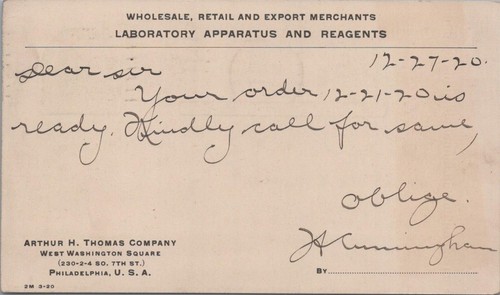 WHOLESALE, RETAIL AND EXPORT MERCHANTS
LABORATORY APPARATUS AND REAGENTS
12-27-20.
Dear sir
Your order 12-21-20 is
ready. Kindly call for same,
oblige.
H Cunningham
ARTHUR H. THOMAS COMPANY
WEST WASHINGTON SQUARE
(230-2-4 SO. 7TH ST.)
PHILADELPHIA, U. S. A.
BY
2M 3-20